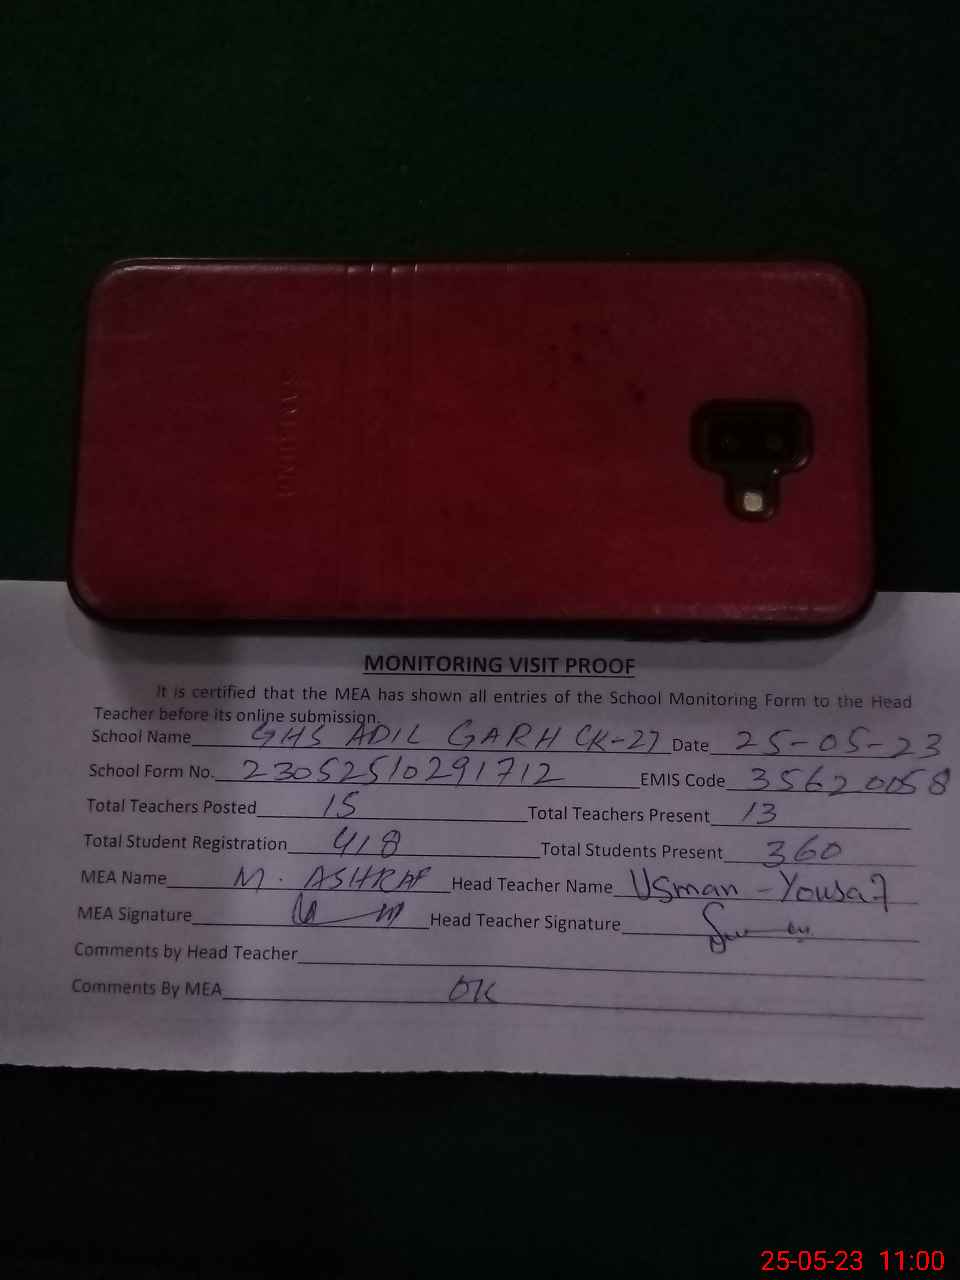 SAMSUNG
MONITORING VISIT PROOF
It is certified that the MEA has shown all entries of the School Monitoring Form to the Head
Teacher before its online submission.
School Name GHS ADIL GARH CK-27 Date 25-05-23
School Form No. 23052510291712 EMIS Code 35620058
Total Teachers Posted 15 Total Teachers Present 13
Total Student Registration 418 Total Students Present 360
MEA Name M. ASHRAF Head Teacher Name Usman - Yousaf
MEA Signature Head Teacher Signature
Comments by Head Teacher
Comments By MEA OK
25-05-23 11:00